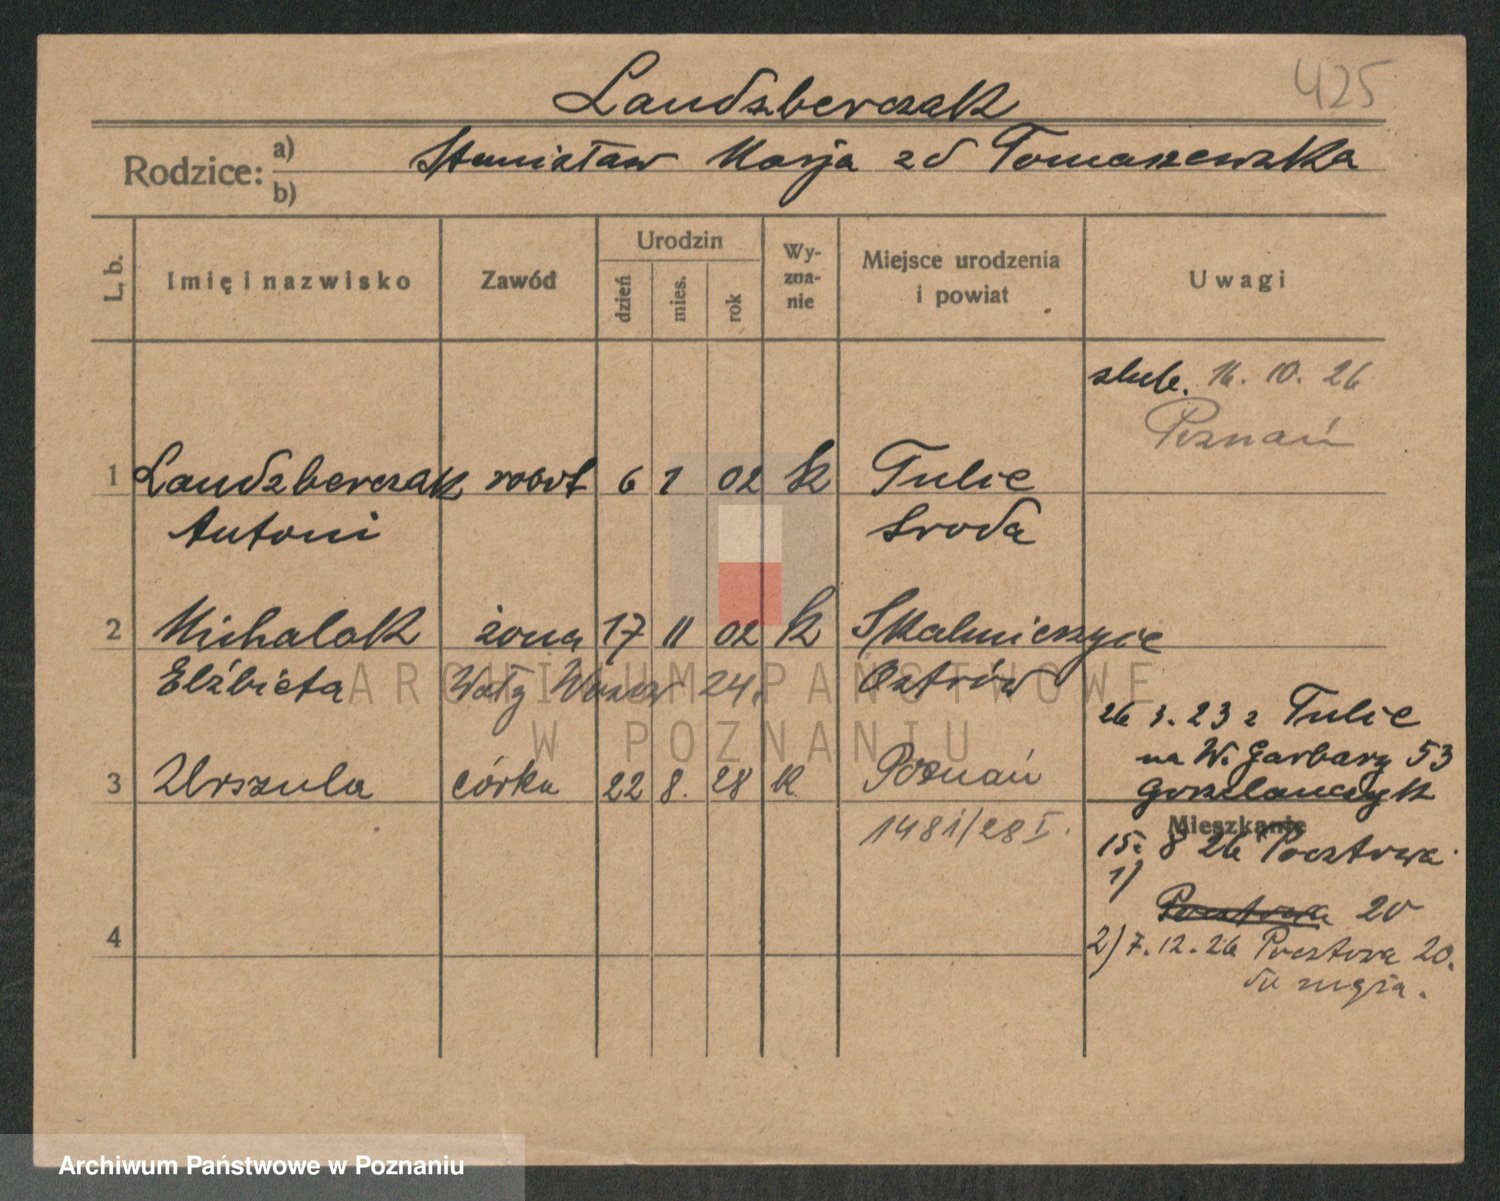 425
Landzberczak
Rodzice: a) Stanisław Marja zd Tomaszewska
b)
L. b. Imię i nazwisko Zawód Urodzin dzień mies. rok Wy-zna-nie Miejsce urodzenia i powiat Uwagi
slub. 16. 10. 26
Poznań
1 Landzberczak robot 6 1 02 k Tulce
Antoni Sroda
2 Michalak żona 17 11 02 k Skalmierzyce
Elżbieta Wały 24. Ostrów
26 3. 23 z Tulce
na W. Garbary 53
3 Urszula córka 22 8. 28 k Poznań
Mieszkanie
1481/28 I.
15. 8 26 Pocztowa
1)
Pocztowa 20
4
2) 7. 12. 26 Pocztowa 20.
ARCHIWUM PAŃSTWOWE
W POZNANIU
Archiwum Państwowe w Poznaniu